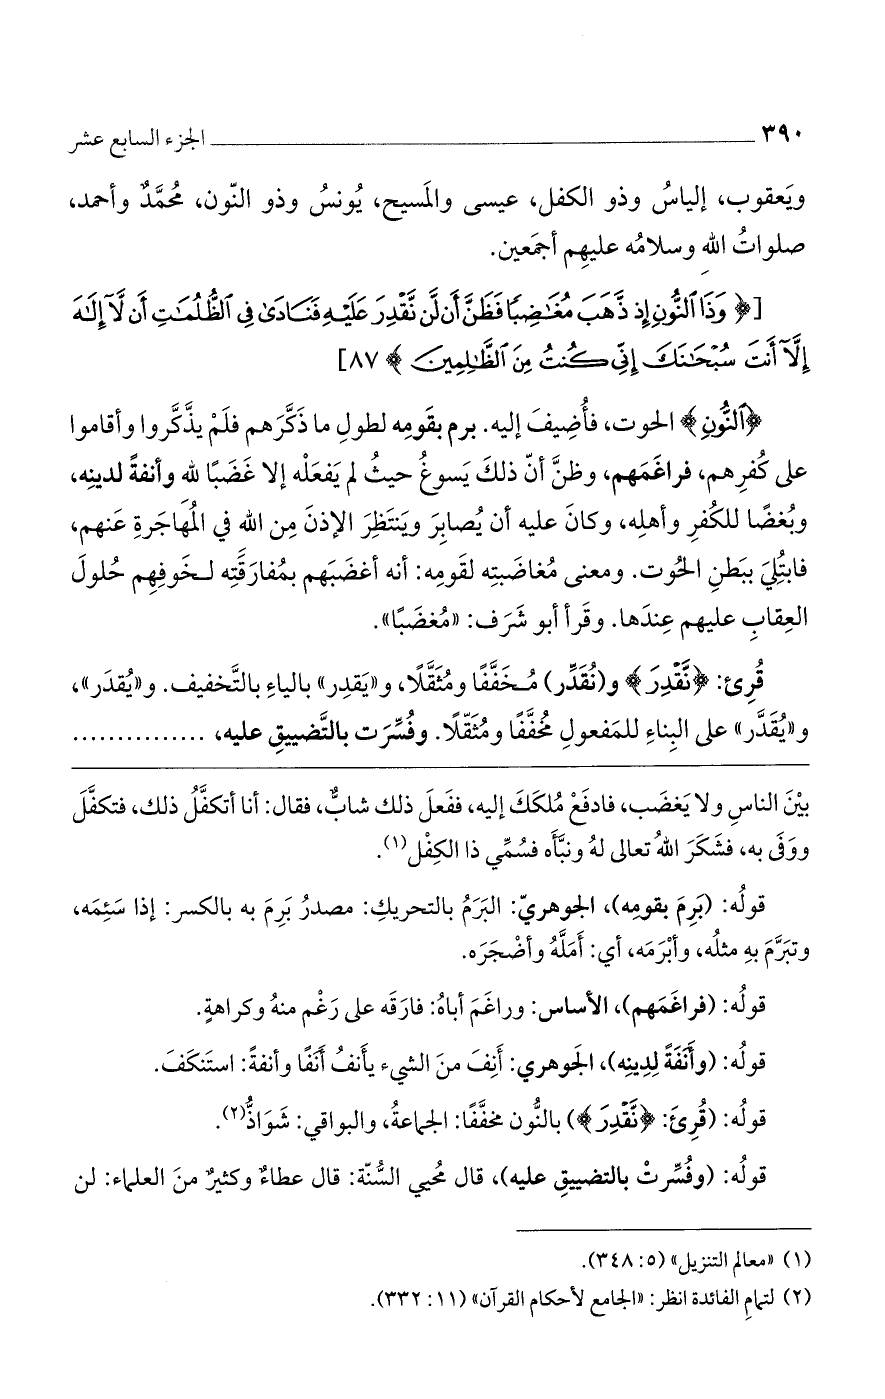 ٣٩٠ ــــــــــ الجزء السابع عشر
ويَعقوب، إلياسُ وذو الكفل، عيسى والمَسيح، يُونسُ وذو النّون، مُحمَّدٌ وأحمد،
صلواتُ الله وسلامُه عليهِم أجمَعين.
[﴿ وَذَا ٱلنُّونِ إِذ ذَّهَبَ مُغَٰضِبًا فَظَنَّ أَن لَّن نَّقْدِرَ عَلَيْهِ فَنَادَىٰ فِى ٱلظُّلُمَٰتِ أَن لَّآ إِلَٰهَ
إِلَّآ أَنتَ سُبْحَٰنَكَ إِنِّى كُنتُ مِنَ ٱلظَّٰلِمِينَ ﴾ ٨٧]
﴿ٱلنُّونِ﴾ الحوت، فأُضِيفَ إليه. برم بقَومِه لطولِ ما ذَكَّرَهم فلَمْ يذَّكَّروا وأقاموا
على كُفرِهم، فراغَمَهم، وظنَّ أنّ ذلكَ يَسوغُ حيثُ لم يَفعَلْه إلا غَضَبًا لله وأنفةً لدينِه،
وبُغضًا للكُفرِ وأهلِه، وكانَ عليه أن يُصابِرَ ويَنتَظِرَ الإذنَ مِن الله في المُهَاجَرةِ عَنهم،
فابتُلِيَ ببَطنِ الحُوت. ومعنى مُغاضَبتِه لقَومِه: أنه أغضَبَهم بمُفارَقَتِه لـخَوفِهِم حُلولَ
العِقابِ عليهم عِندَها. وقرأ أبو شَرَف: «مُغضَبًا».
قُرِئ: ﴿نَّقْدِرَ﴾ و(نُقَدِّر) مُـخَفَّفًا ومُثَقَّلًا، و«يَقدِر» بالياءِ بالتَّخفيف. و«يُقدَر»،
و«يُقَدَّر» على البِناءِ للمَفعولِ مُخَفَّفًا ومُثَقّلًا. وفُسِّرَت بالتَّضييقِ عليه، ...............
بيْنَ الناسِ ولا يَغضَب، فادفَعْ مُلكَكَ إليه، ففَعلَ ذلك شابٌّ، فقال: أنا أتكفَّلُ ذلك، فتكفَّلَ
ووَفَى به، فشَكَرَ اللهُ تعالى لهُ ونبَّأه فسُمِّي ذا الكِفْل(١).
قولُه: (بَرِمَ بقومِه)، الجوهريّ: البَرَمُ بالتحريكِ: مصدرُ بَرِمَ به بالكسر: إذا سَئِمَه،
وتبَرَّمَ بهِ مثلُه، وأبْرَمَه، أي: أمَلَّهُ وأضْجَرَه.
قولُه: (فراغَمَهم)، الأساس: وراغَمَ أباهُ: فارَقَه على رَغْم منهُ وكراهةٍ.
قولُه: (وأَنَفَةً لِدِينِه)، الجَوهري: أنِفَ منَ الشيء يأنَفُ أنَفًا وأنفةً: استَنكَفَ.
قولُه: (قُرِئَ: ﴿نَّقْدِرَ﴾) بالنُّون مخفَّفًا: الجماعةُ، والبواقي: شَوَاذٌّ(٢).
قولُه: (وفُسِّرتْ بالتضييقِ عليه)، قال مُحيي السُّنّة: قال عطاءٌ وكثيرٌ منَ العلماء: لن
(١) «معالم التنزيل» (٥: ٣٤٨).
(٢) لتمامِ الفائدة انظر: «الجامع لأحكام القرآن» (١١: ٣٣٢).